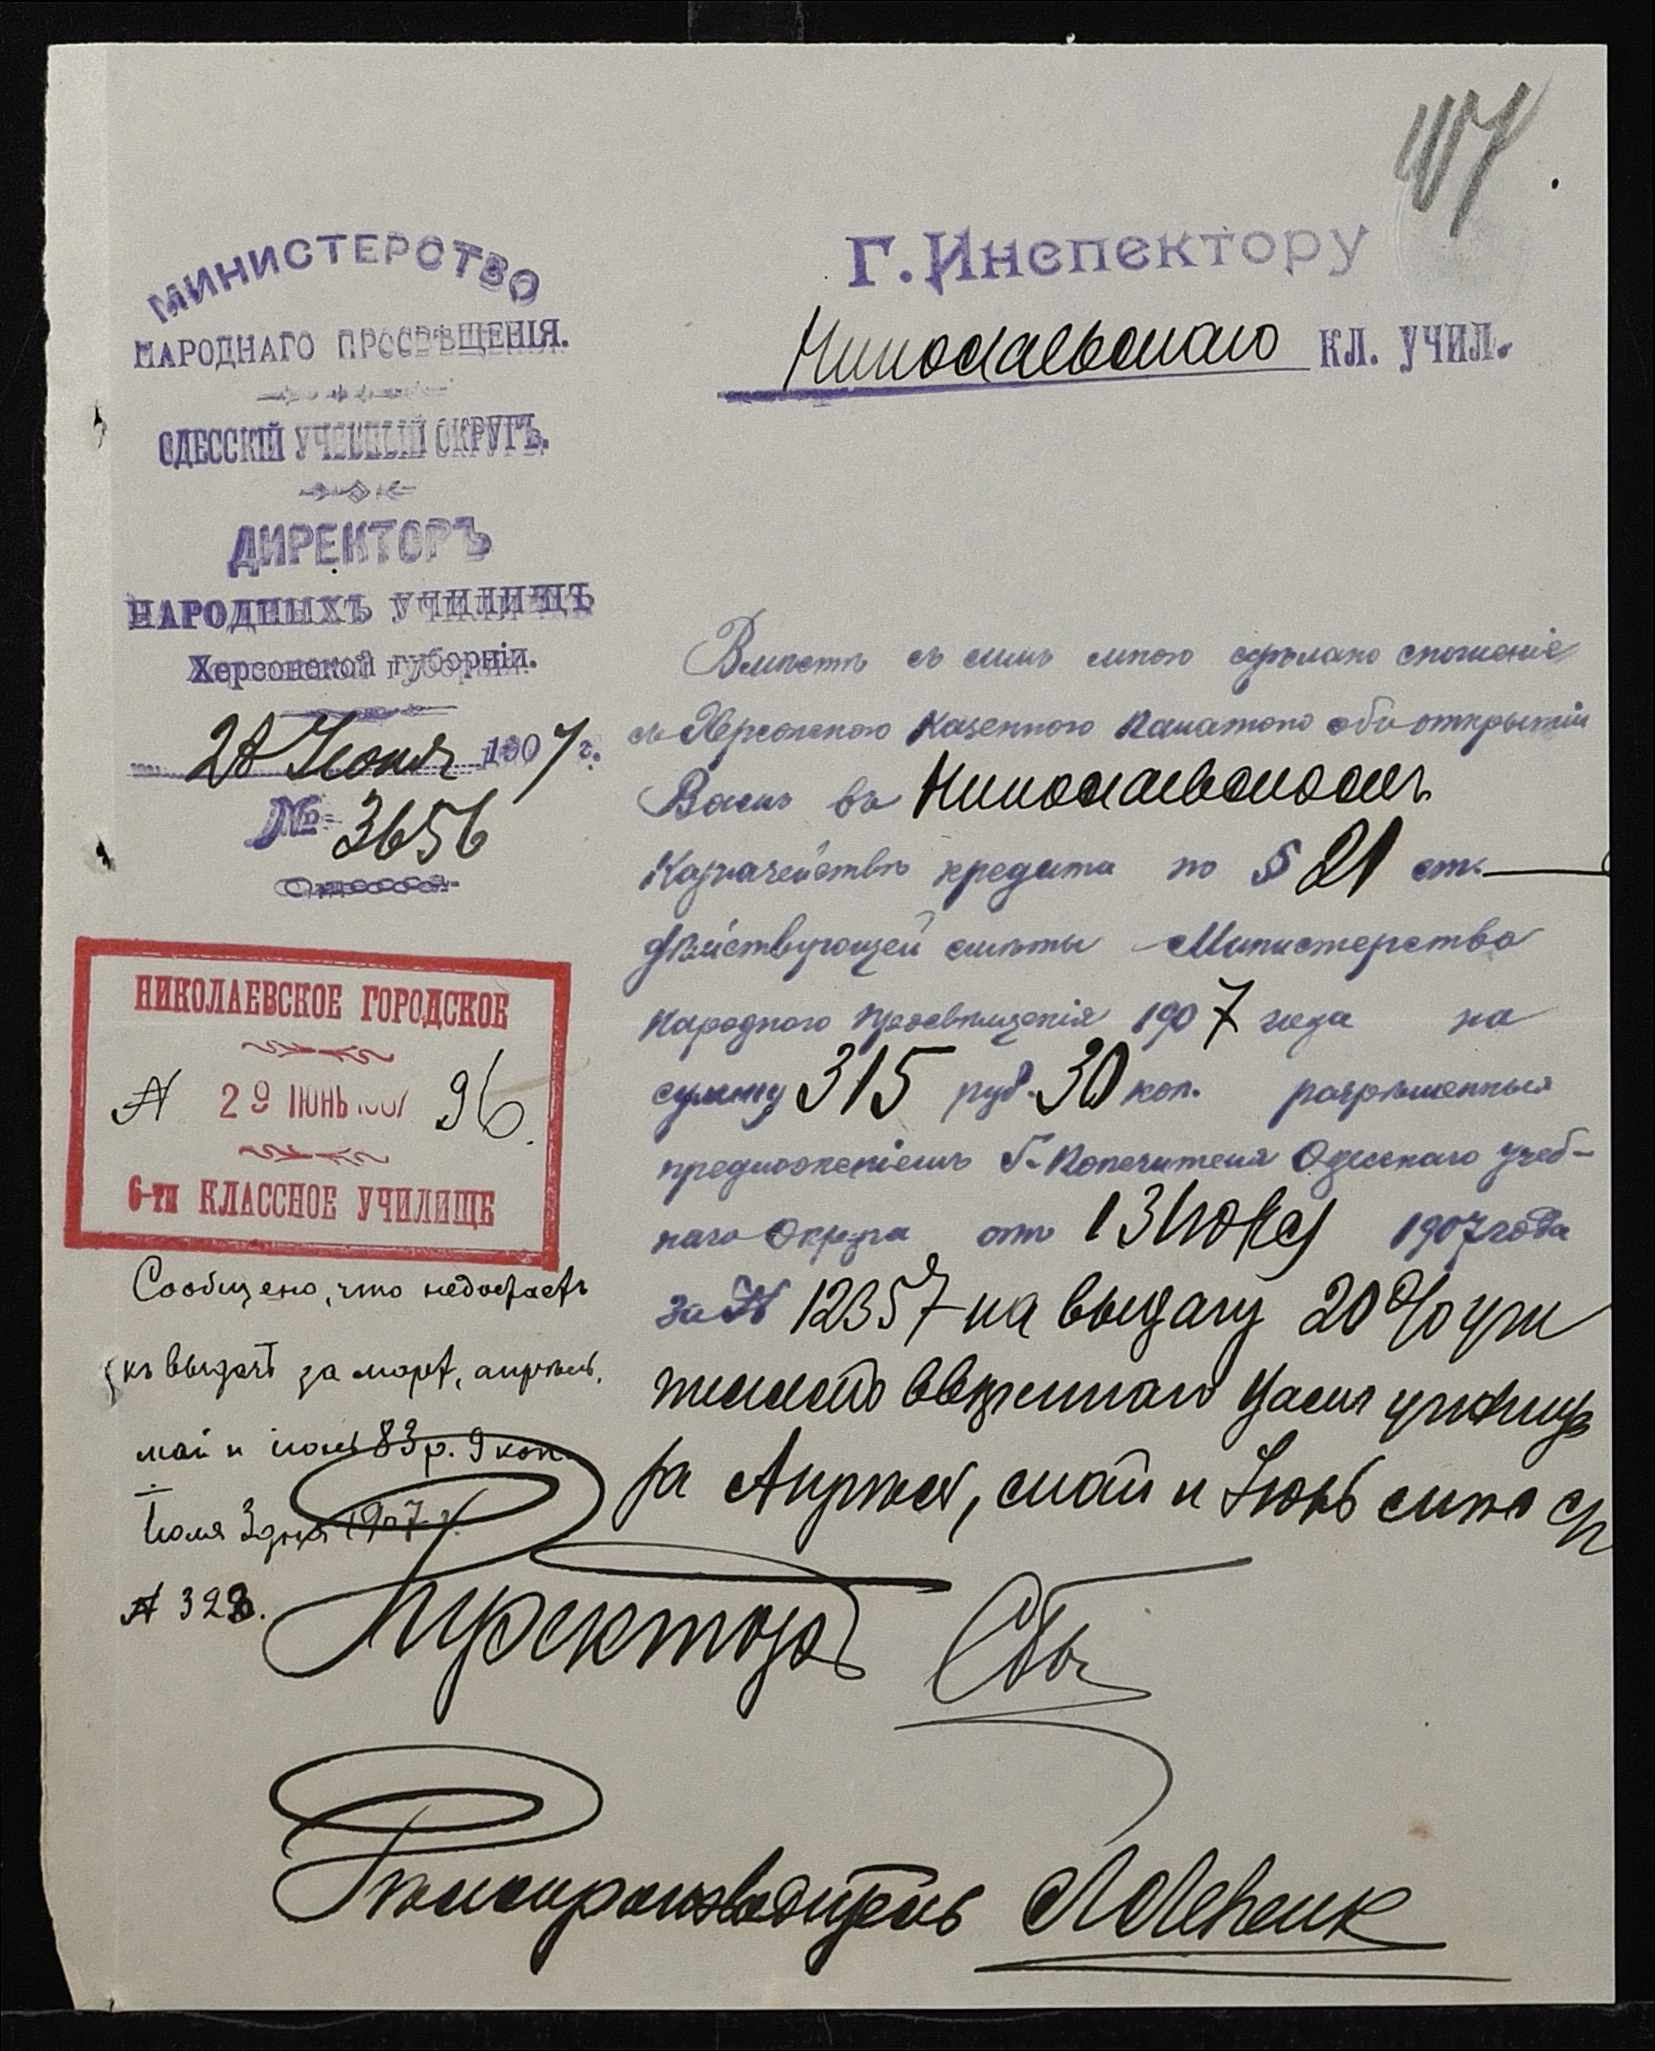 107
МИНИСТЕРСТВО
НАРОДНАГО ПРОСВѢЩЕНІЯ.
ОДЕССКІЙ УЧЕБНЫЙ ОКРУГЪ.
ДИРЕКТОРЪ
НАРОДНЫХЪ УЧИЛИЩЪ
Херсонской губерніи.
28 Іюня 1907 г.
№ 3656
Одесса.
Г. Инспектору
Николаевскаго КЛ. УЧИЛ.
Вмѣстѣ съ симъ мною сдѣлано сношеніе
съ Херсонскою Казенною Палатою объ открытіи
Вамъ въ Николаевскомъ
Казначействѣ кредита по § 21 ст. —
дѣйствующей смѣты Министерства
Народного Просвѣщенія 1907 года на
сумму 315 руб. 30 коп. разрѣшенный
предложеніемъ Г. Попечителя Одесскаго Учеб-
наго Округа отъ 13 Іюня 1907 года
за № 12357 на выдачу 20%
ввѣреннаго Вамъ училища
за Апрѣль, май и Іюнь сего
Директоръ
Дѣлопроизводитель
НИКОЛАЕВСКОЕ ГОРОДСКОЕ
№ 29 ІЮНЬ 1907 96.
6-ти КЛАССНОЕ УЧИЛИЩЕ
Сообщено, что недостаетъ
къ выдачѣ за мартъ, апрѣль,
май и іюнь 83 р. 9 коп.
Іюля 3 дня 1907 г.
№ 323.